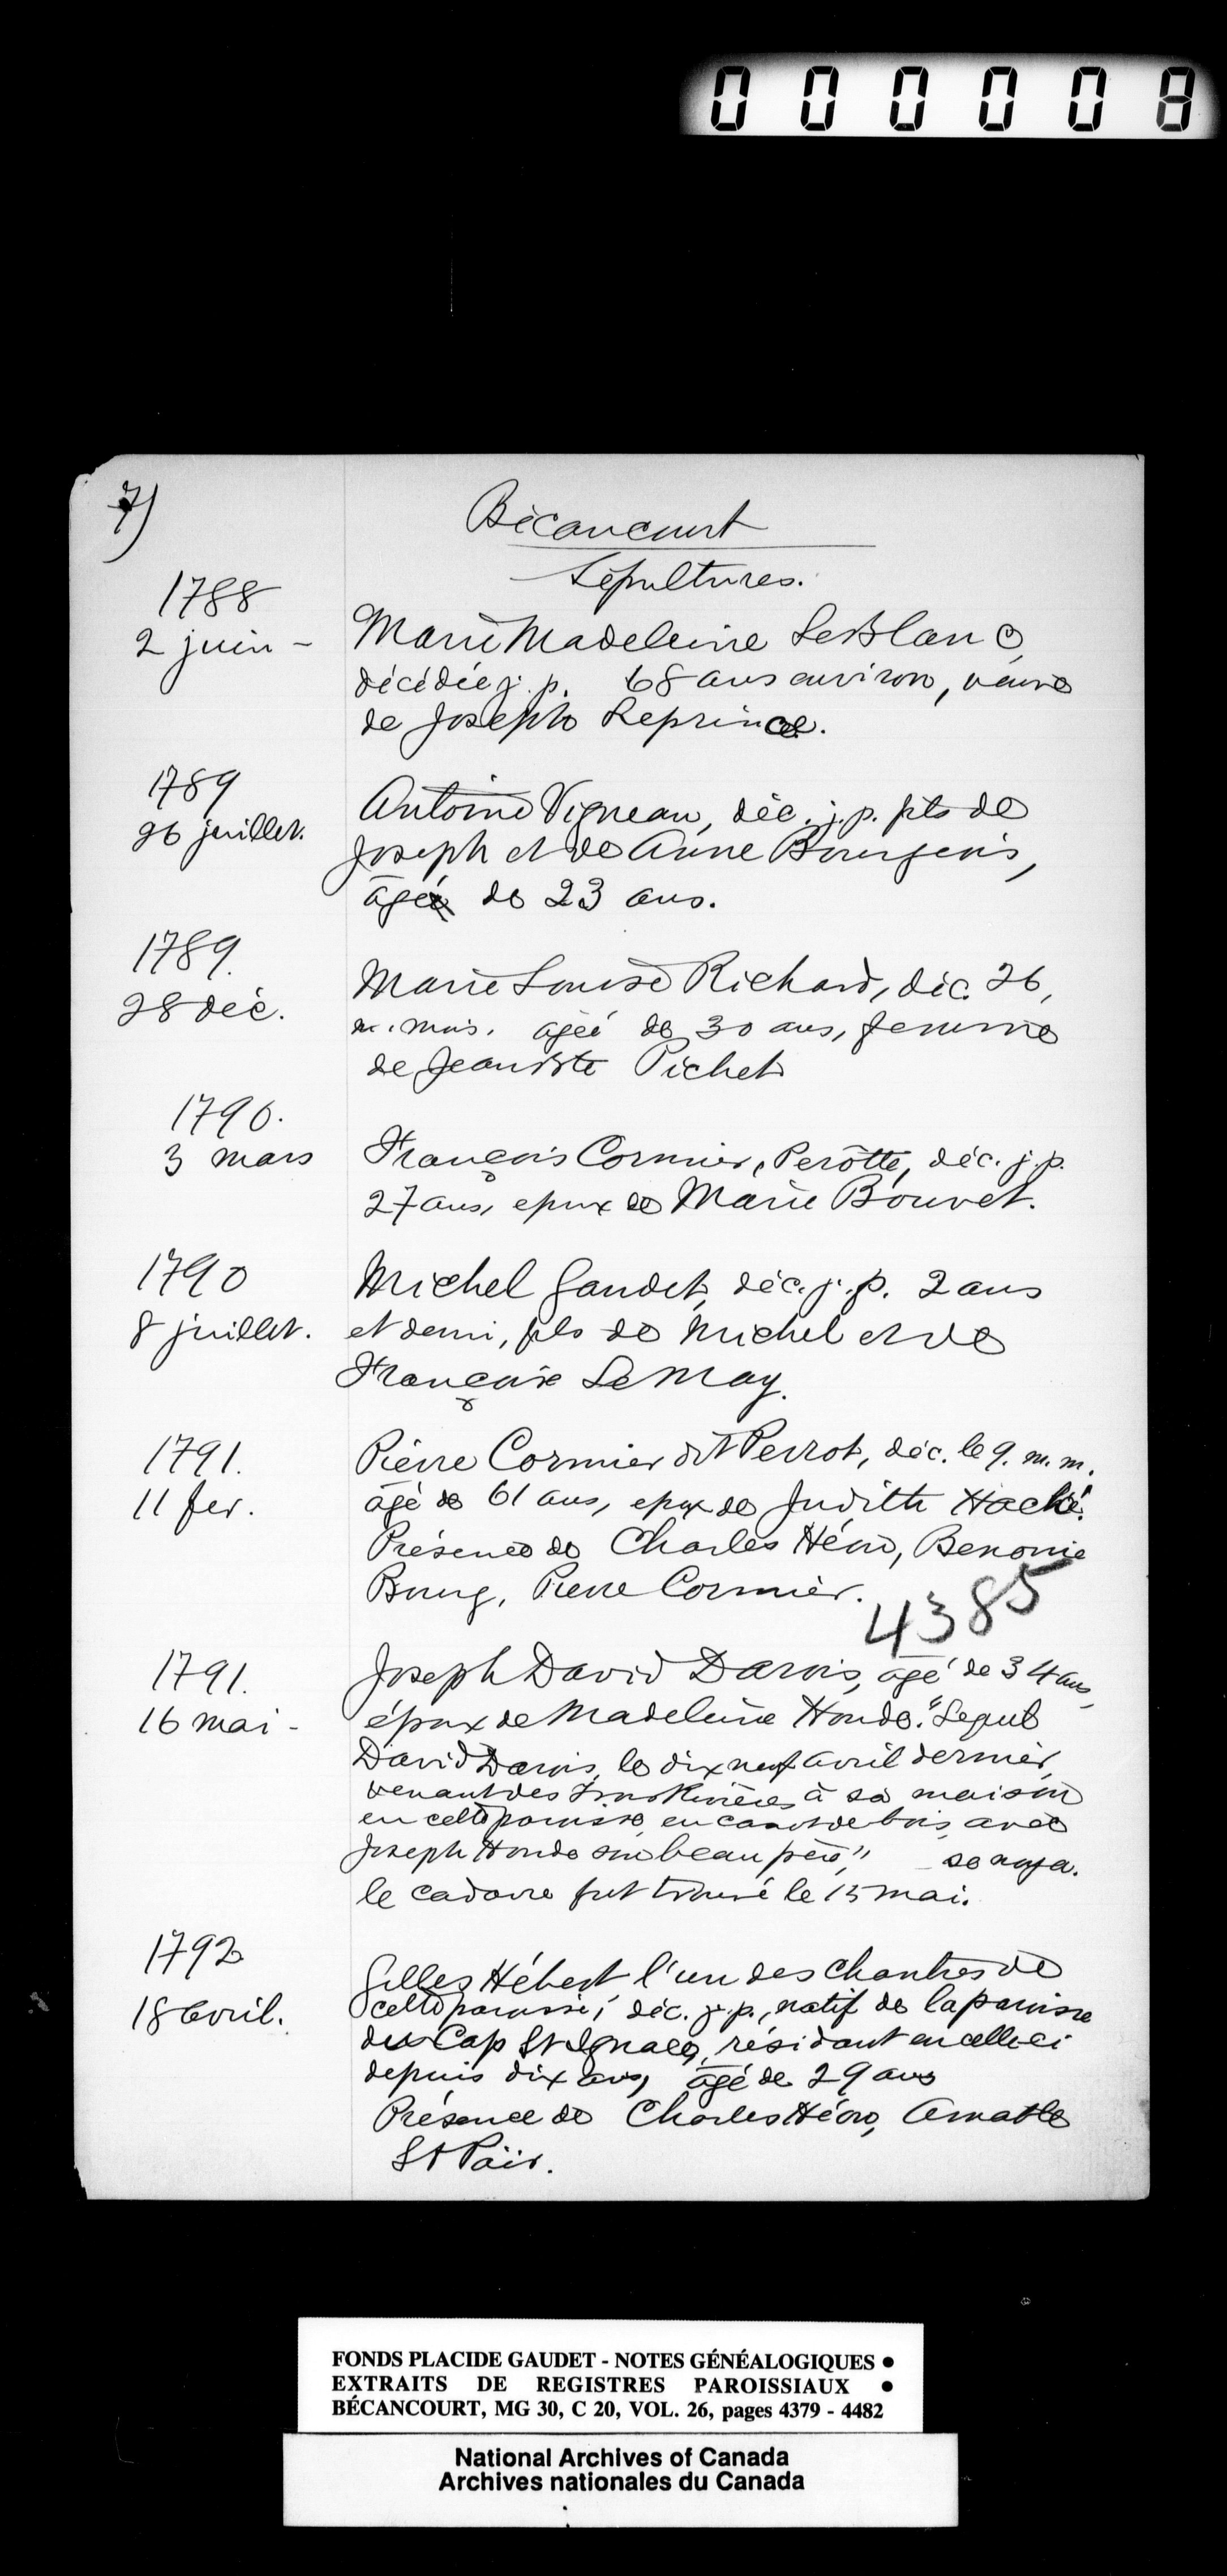 000008
7)
Bécancourt
Sépultures.
1788
2 juin - Marie Madeleine LeBlanc,
décédée j. p. 68 ans environ, veuve
de Joseph Leprince.
1789
26 juillet. Antoine Vigneau, déc. j. p. fils de
Joseph et de Anne Bourgeois,
âgé de 23 ans.
1789.
28 déc. Marie Louise Richard, déc. 26,
m. mois. âgée de 30 ans, femme
de Jean Bte Pichet
1790.
3 mars François Cormier, Perotte, déc. j. p.
27 ans, epoux de Marie Bouvet.
1790
8 juillet. Michel Gaudet, déc. j. p. 2 ans
et demi, fils de Michel et de
Françoise LeMay.
1791.
11 fev. Pierre Cormier dit Perrot, déc. le 9. m. m.
âgé de 61 ans, epox de Judith Haché.
Présence de Charles Héon, Benomie
Bourg, Pierre Cormier.
4385
1791.
16 mai - Joseph David Darois, âgé de 34 ans,
époux de Madeleine Houde. "Lequel
David Darois, le dix neuf avril dernier,
venant des Trois Rivières à sa maison
en cette paroisse, en canot de bois, avec
Joseph Houde son beau père," se noya.
le cadavre fut trouvé le 15 mai.
1792
18 avril. Gilles Hébert l'un des chantres de
cette paroisse, déc. j. p., natif de la paroisse
du Cap St Ignace, résidant en celle-ci
depuis dix ans, âgé de 29 ans
Présence de Charles Héon, Amable
St Pair.
FONDS PLACIDE GAUDET - NOTES GÉNÉALOGIQUES •
EXTRAITS DE REGISTRES PAROISSIAUX •
BÉCANCOURT, MG 30, C 20, VOL. 26, pages 4379 - 4482
National Archives of Canada
Archives nationales du Canada